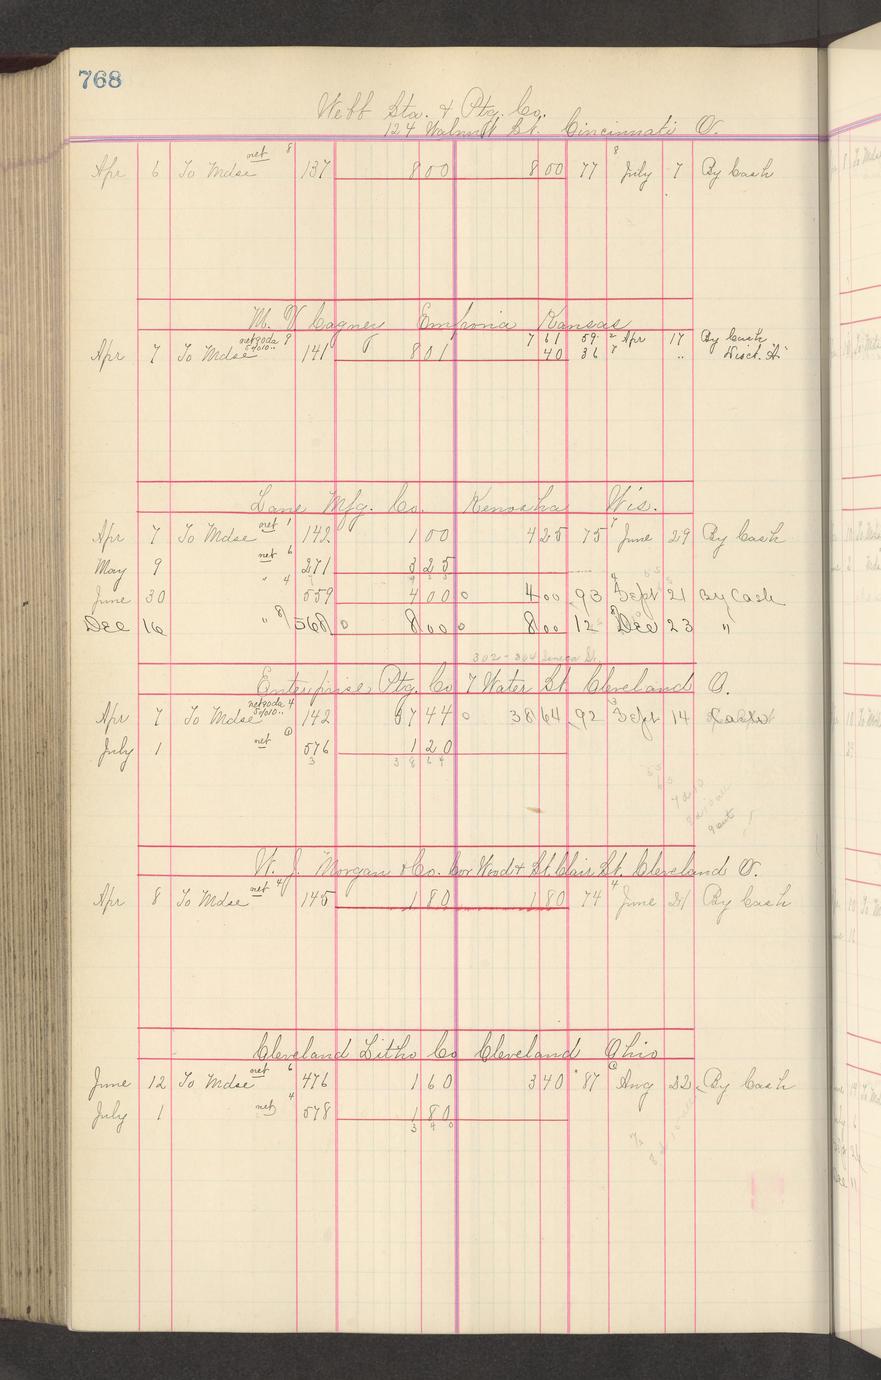 768
Webb Sta. & Ptg. Co.
124 Walnut St. Cincinnati O.
Apr 6 To Mdse net 8 137 8 00 8 00 77 8 July 7 By Cash
M. V. Cagney Emporia Kansas
Apr 7 To Mdse 9 141 8 01 7 61 59 2 Apr 17 By Cash
40 36 7 " Disct. A"
Lane Mfg. Co. Kenosha Wis.
Apr 7 To Mdse net 1 142 1 00 4 25 75 7 June 29 By Cash
May 9 net 6 271 3 25
June 30 " 4 559 4 00 4 00 93 4 Sept 21 By Cash
Dec 16 " 8 568 8 00 8 00 12 8 Dec 23 "
302-304 Seneca St.
Enterprise Ptg. Co 7 Water St. Cleveland O.
Apr 7 To Mdse 4 142 37 44 38 64 92 Sept 14 Cash
July 1 net 576 1 20
3 3 8 6 4
W. J. Morgan & Co. Cor Wood & St. Clair St. Cleveland O.
Apr 8 To Mdse net 4 145 1 80 1 80 74 4 June 21 By Cash
Cleveland Litho Co Cleveland Ohio
June 12 To Mdse net 6 476 1 60 3 40 87 6 Aug 22 By Cash
July 1 net 4 578 1 80
3 4 0